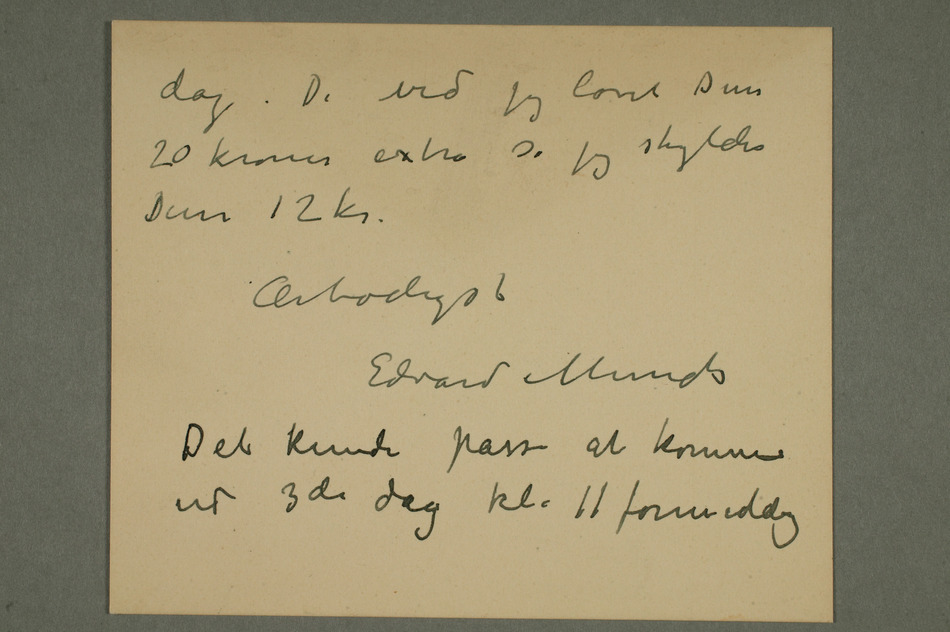 dag. De ved jeg lovet Dem
20 kroner extra så jeg skylder
Dem 12 kr.
Ærbødigst
Edvard Munch
Det kunde passe at komme
ud 3de dag kl. 11 formiddag